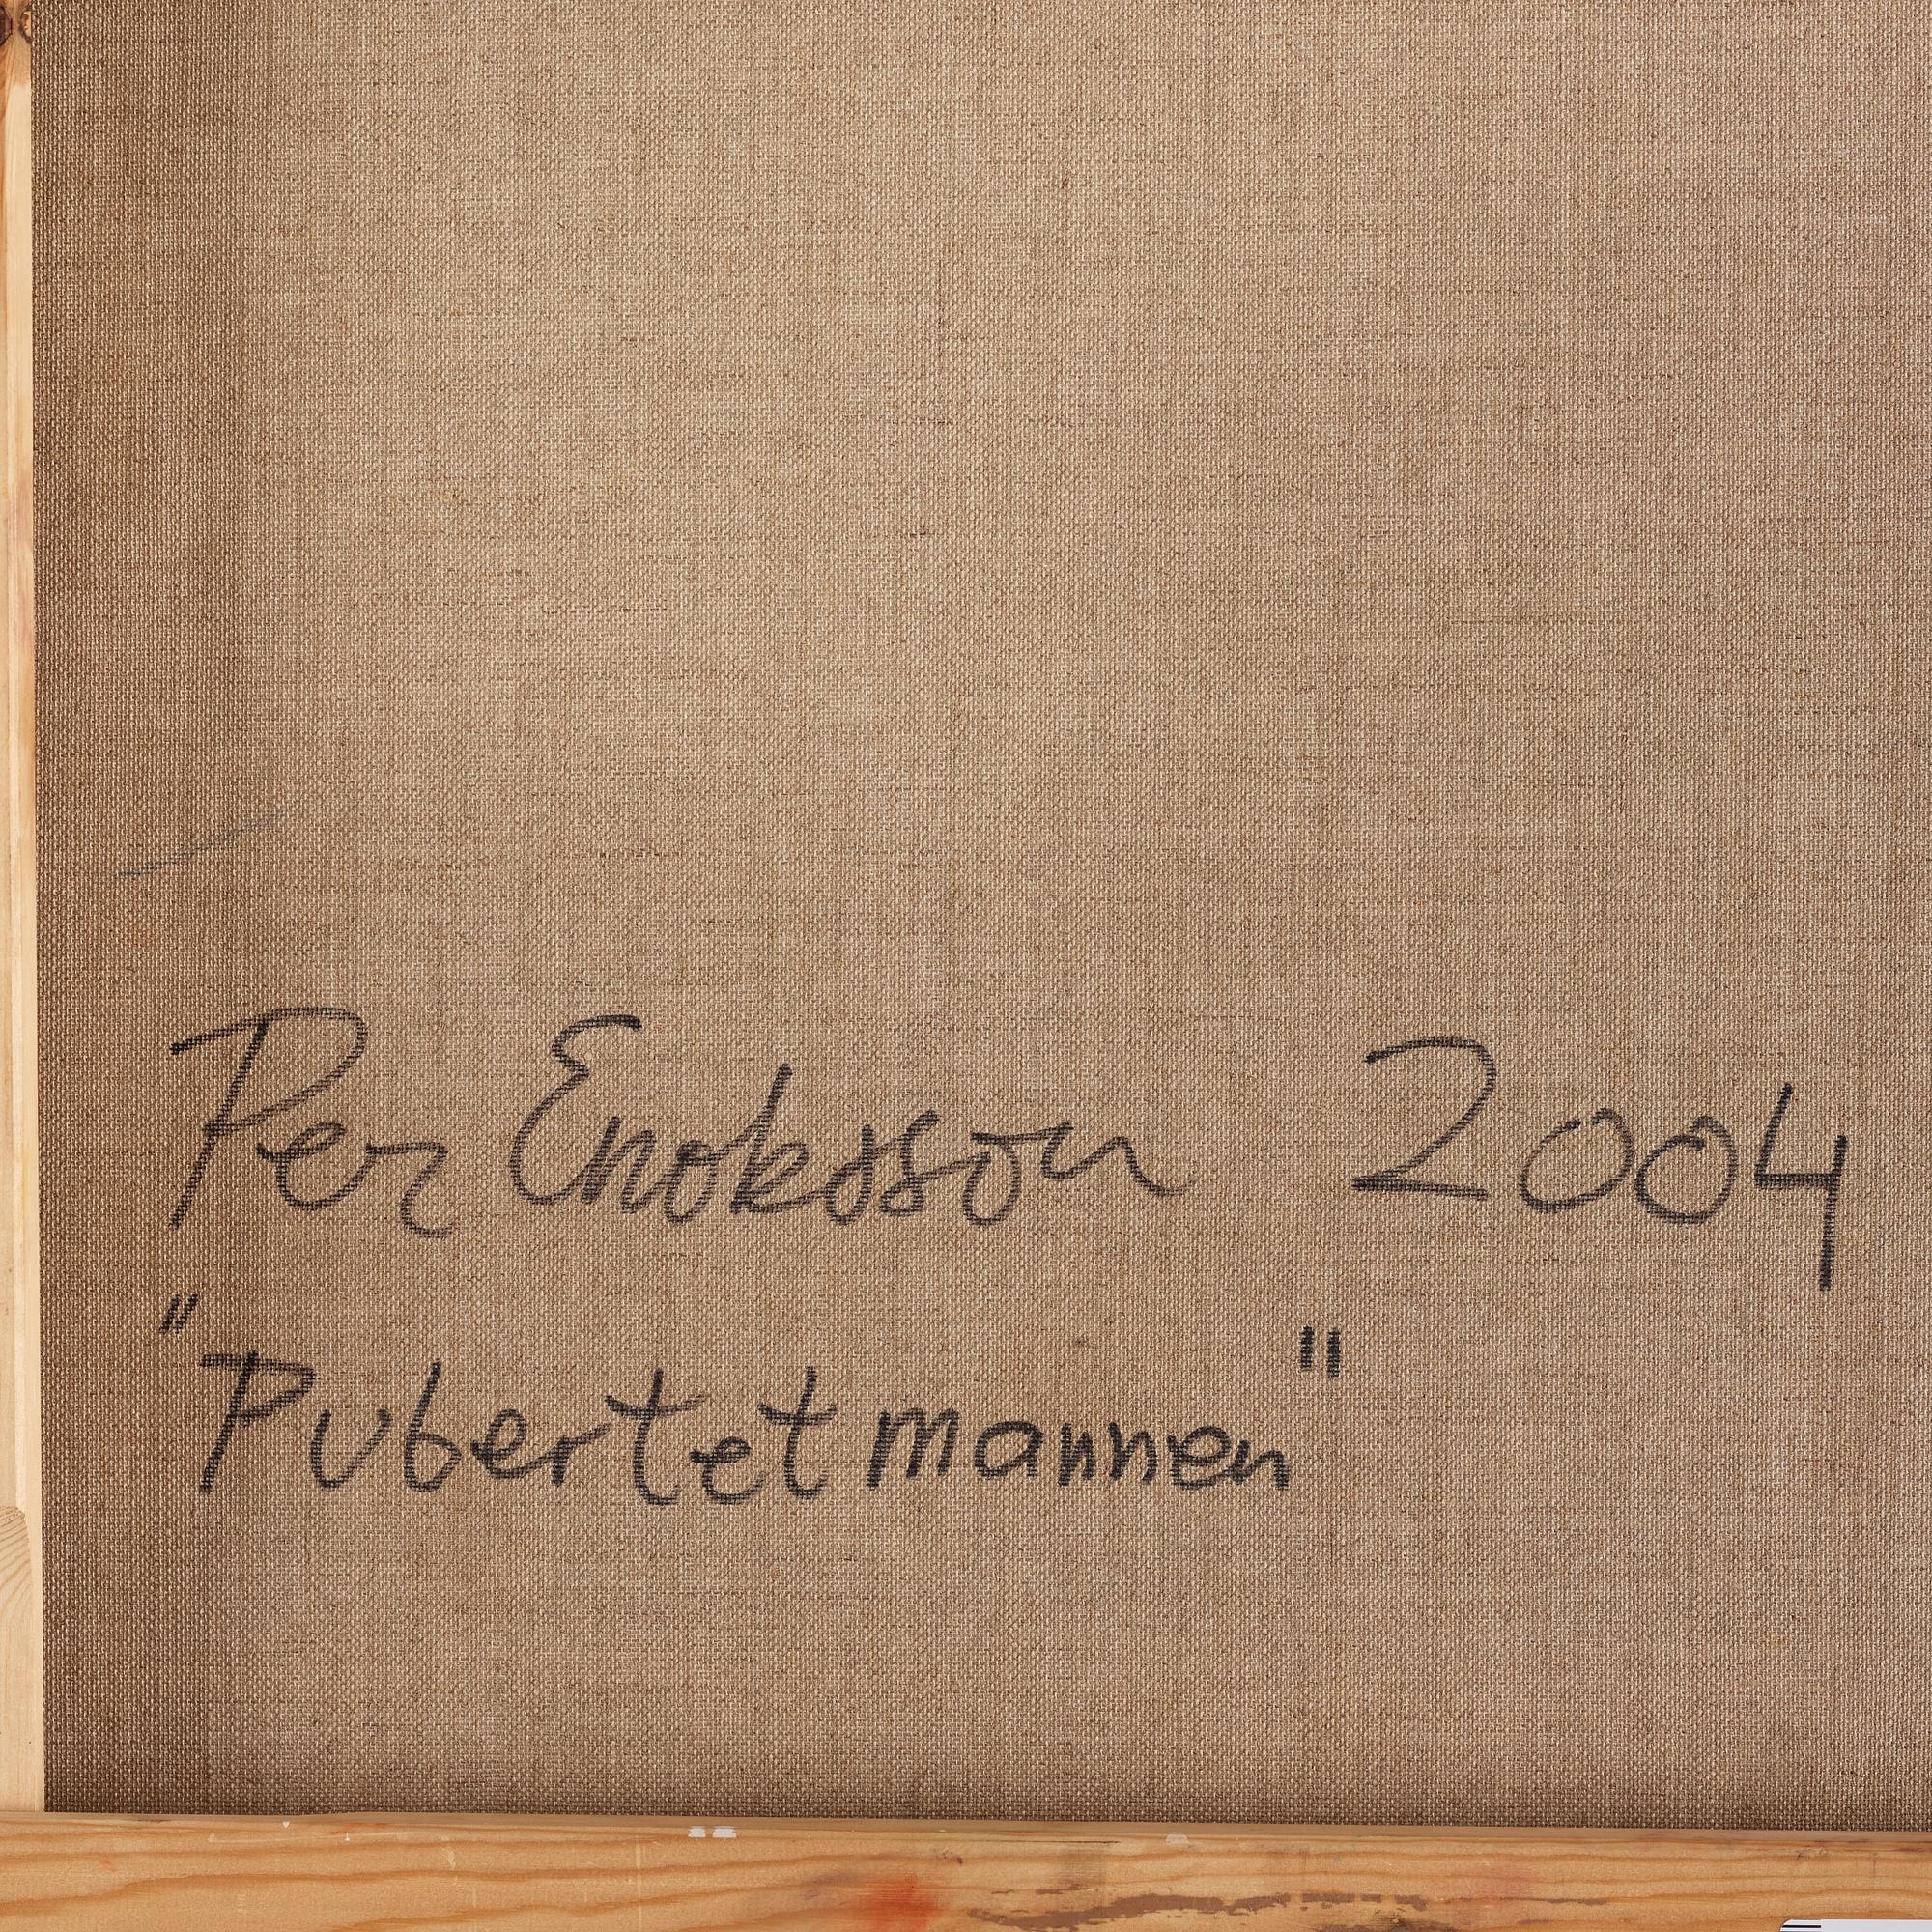 Per Enoksson 2004
"Pubertetmannen"